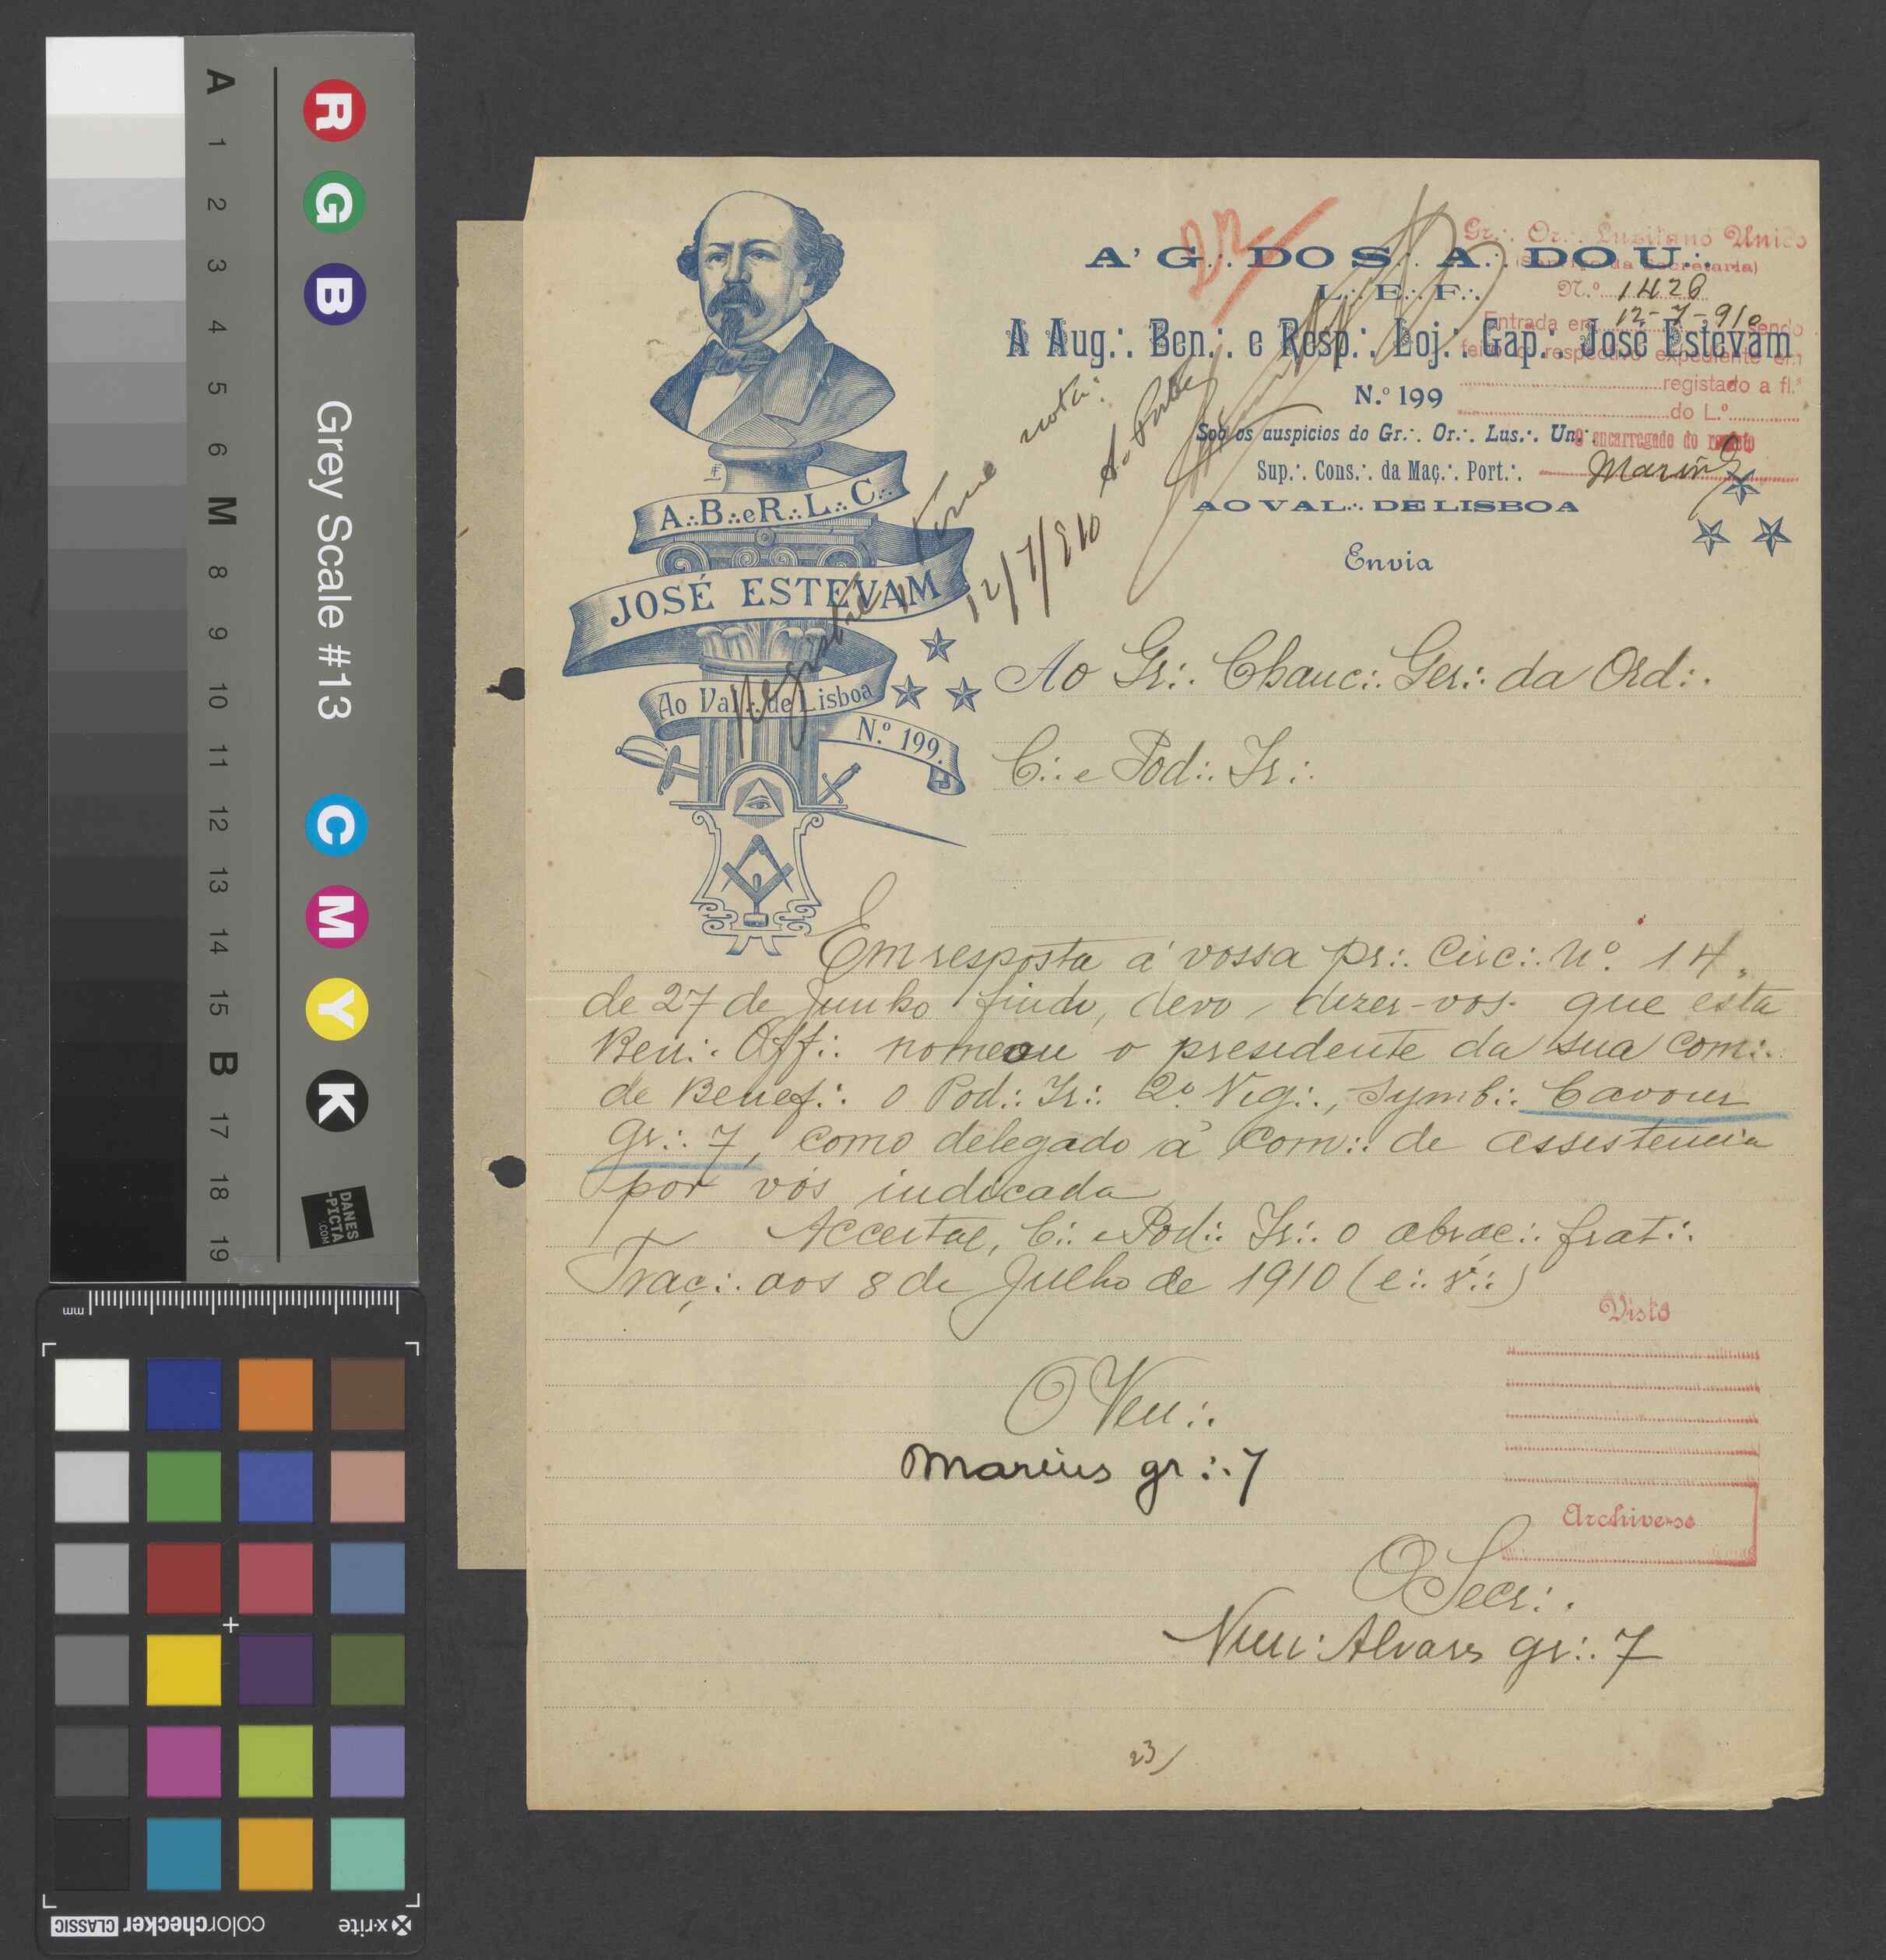 A
1
2
3
4
5
6
M
8
9
10
11
12
13
14
15
B
17
18
19
R G B
Grey Scale #13
C M Y K
DANES
-PICTA
.COM
mm
colorchecker CLASSIC
x-rite
A∴B∴eR∴L∴C∴
JOSÉ ESTEVAM
Ao Val∴ de Lisboa
N.º 199.
22
Gr∴ Or∴ Luzitano Unido
(Serviço da Secretaria)
N.º 1428
Entrada em 12-7-910 sendo
feito o respectivo expediente em
registado a fl.ª
do L.º
O encarregado do registo
A' G∴ DO S∴ A∴ DO U∴
L∴ E∴ F∴
A Aug∴ Ben∴ e Resp∴ Loj∴ Cap∴ José Estevam
N.º 199
Sob os auspicios do Gr∴ Or∴ Lus∴ Un∴
Sup∴ Cons∴ da Maç∴ Port∴
AO VAL∴ DE LISBOA
Envia
Registe e Tome nota
12/7/910
Ao Gr∴ Chanc∴ Ger∴ da Ord∴
C∴ e Pod∴ Ir∴
Em resposta á vossa pr∴ Circ∴ Nº. 14,
de 27 de Junho findo, devo dizer-vos que esta
Ben∴ Off∴ nomeou o presidente da sua Com∴
de Benef∴ o Pod∴ Ir∴ 2º Vig∴, Symb∴ Cavour
gr∴ 7, como delegado á Com∴ de assistencia
por vós indicada
Acceitae, C∴ e Pod∴ Ir∴ o abraç∴ frat∴
Traç∴ aos 8 de Julho de 1910 (e∴ v∴)
Visto
O Ven∴
Marius gr∴ 7
Archive-se
O Secr∴
Nun'Alvares gr∴ 7
23